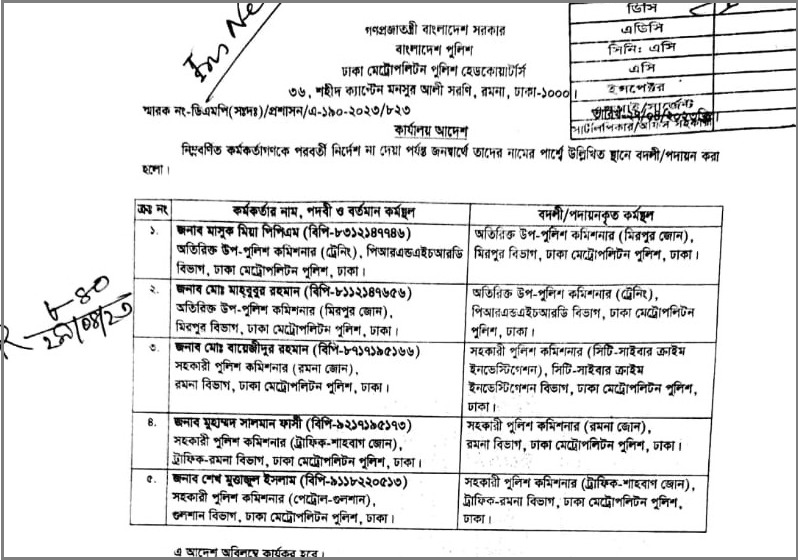 গণপ্রজাতন্ত্রী বাংলাদেশ সরকার
বাংলাদেশ পুলিশ
ঢাকা মেট্রোপলিটন পুলিশ হেডকোয়ার্টার্স
৩৬, শহীদ ক্যাপ্টেন মনসুর আলী সরণি, রমনা, ঢাকা-১০০০।
ডিসি
এডিসি
সিনিঃ এসি
এসি
ইন্সপেক্টর
স্মারক নং-ডিএমপি(সদঃ)/প্রশাসন/এ-১৯০-২০২৩/৮২৩
কার্যালয় আদেশ
নিম্নবর্ণিত কর্মকর্তাগণকে পরবর্তী নির্দেশ না দেয়া পর্যন্ত জনস্বার্থে তাদের নামের পার্শ্বে উল্লিখিত স্থানে বদলী/পদায়ন করা
হলো।
ক্রঃ নং কর্মকর্তার নাম, পদবী ও বর্তমান কর্মস্থল বদলী/পদায়নকৃত কর্মস্থল
১. জনাব মাসুক মিয়া পিপিএম (বিপি-৮৩১২১৪৭৭৪৬) অতিরিক্ত উপ-পুলিশ কমিশনার (মিরপুর জোন),
অতিরিক্ত উপ-পুলিশ কমিশনার (ট্রেনিং), পিআরএন্ডএইচআরডি মিরপুর বিভাগ, ঢাকা মেট্রোপলিটন পুলিশ, ঢাকা।
বিভাগ, ঢাকা মেট্রোপলিটন পুলিশ, ঢাকা।
২. জনাব মোঃ মাহবুবুর রহমান (বিপি-৮১১২১৪৭৬৫৬) অতিরিক্ত উপ-পুলিশ কমিশনার (ট্রেনিং),
অতিরিক্ত উপ-পুলিশ কমিশনার (মিরপুর জোন), পিআরএন্ডএইচআরডি বিভাগ, ঢাকা মেট্রোপলিটন
মিরপুর বিভাগ, ঢাকা মেট্রোপলিটন পুলিশ, ঢাকা। পুলিশ, ঢাকা।
৩. জনাব মোঃ বায়েজীদুর রহমান (বিপি-৮৭১৭১৯৫১৬৬) সহকারী পুলিশ কমিশনার (সিটি-সাইবার ক্রাইম
সহকারী পুলিশ কমিশনার (রমনা জোন), ইনভেস্টিগেশন), সিটি-সাইবার ক্রাইম
রমনা বিভাগ, ঢাকা মেট্রোপলিটন পুলিশ, ঢাকা। ইনভেস্টিগেশন বিভাগ, ঢাকা মেট্রোপলিটন পুলিশ,
ঢাকা।
৪. জনাব মুহাম্মদ সালমান ফার্সী (বিপি-৯২১৭১৯৫১৭৩) সহকারী পুলিশ কমিশনার (রমনা জোন),
সহকারী পুলিশ কমিশনার (ট্রাফিক-শাহবাগ জোন), রমনা বিভাগ, ঢাকা মেট্রোপলিটন পুলিশ, ঢাকা।
ট্রাফিক-রমনা বিভাগ, ঢাকা মেট্রোপলিটন পুলিশ, ঢাকা।
৫. জনাব শেখ মুত্তাজুল ইসলাম (বিপি-৯১১৮২২০৫১৩) সহকারী পুলিশ কমিশনার (ট্রাফিক-শাহবাগ জোন),
সহকারী পুলিশ কমিশনার (পেট্রোল-গুলশান), ট্রাফিক-রমনা বিভাগ, ঢাকা মেট্রোপলিটন পুলিশ,
গুলশান বিভাগ, ঢাকা মেট্রোপলিটন পুলিশ, ঢাকা। ঢাকা।
৮৪০
২৭/০৪/২৩
এ আদেশ অবিলম্বে কার্যকর হবে।